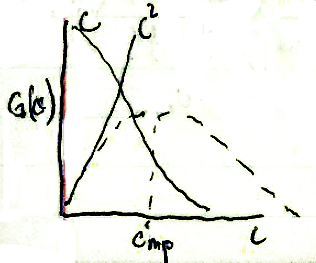 C C²
G(c)
Cmp C